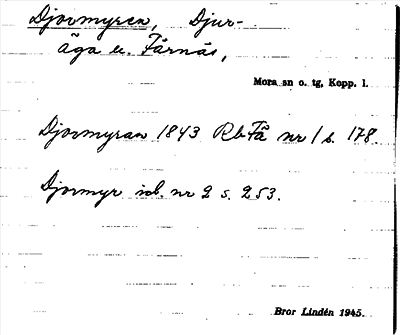 Djovmyren, Djur-
äga u. Färnäs,
Mora sn o. tg, Kopp. l.
Djovmyran 1843 Rb Fä nr 1 s. 178.
Djovmyr ib. nr 2 s. 253.
Bror Lindén 1945.